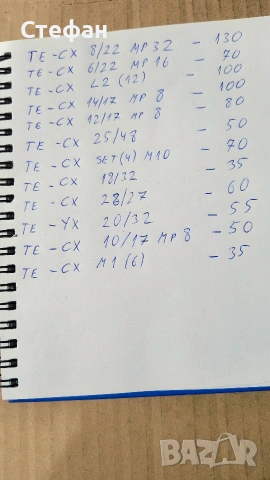 Стефан
TE-CX 8/22 MP 32 - 130
TE-CX 6/22 MP 16 - 70
TE-CX L2 (12) - 100
TE-CX 14/17 MP 8 - 100
TE-CX 12/17 MP 8 - 80
TE-CX 25/48 - 50
TE-CX SET(4) M10 - 70
TE-CX 18/32 - 35
TE-CX 28/27 - 60
TE-YX 20/32 - 55
TE-CX 10/17 MP 8 - 50
TE-CX M1 (6) - 35
BAZAR